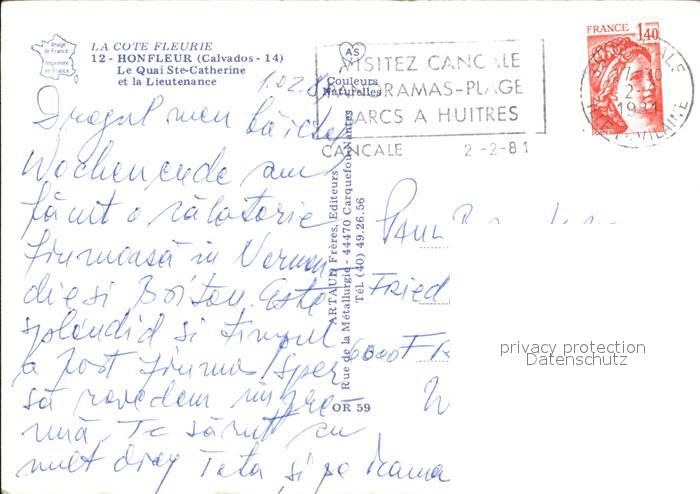 Image
de France
Imprimée
en France
LA COTE FLEURIE
12 - HONFLEUR (Calvados - 14)
Le Quai Ste-Catherine
et la Lieutenance
AS
Couleurs
Naturelles
VISITEZ CANCALE
PANORAMAS-PLAGE
PARCS A HUITRES
CANCALE 2-2-81
FRANCE 1,40
1981
ILLE ET VILAINE
1.02.81
Dragul meu băiat
Wochenende am
făcut o călătorie
frumoasă in Norman
die si
este
splendid si timpul
a fost frumos. Sper
să revedem
Te sărut cu
mult drag Tata si pe mama
ARTAUD Frères, Editeurs
Rue de la Métallurgie - 44470 Carquefou-Nantes
Tél. (40) 49.26.56
OR 59
Paul
Fried
6000 F
W
privacy protection
Datenschutz